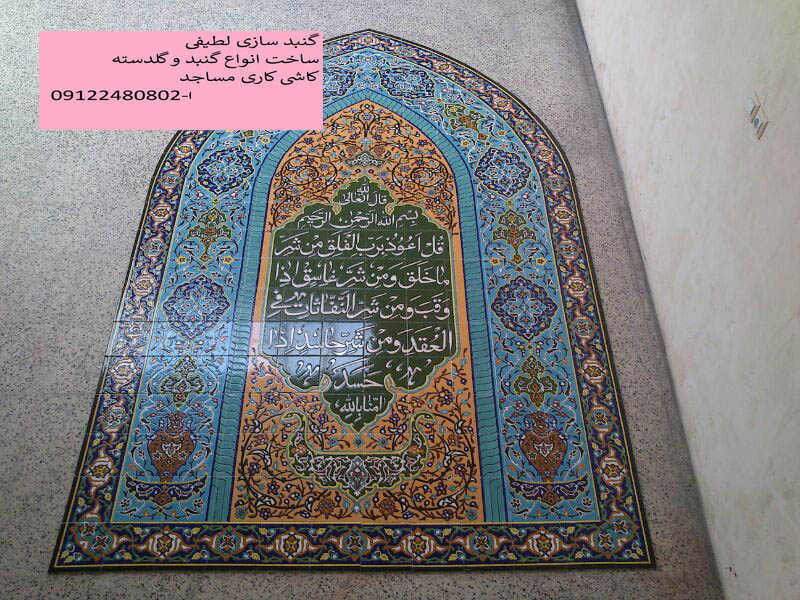 گنبد سازی لطیفی
ساخت انواع گنبد و گلدسته
کاشی کاری مساجد
09122480802-۱
قال الله تعالی
بسم الله الرحمن الرحیم
قُلْ اَعُوذُ بِرَبِّ الْفَلَقِ مِنْ شَرِّ
ما خَلَقَ وَ مِنْ شَرِّ غاسِقٍ اِذا
وَقَبَ وَ مِنْ شَرِّ النَّفّاثاتِ فِی
الْعُقَدِ وَ مِنْ شَرِّ حاسِدٍ اِذا
حَسَدَ
امنا بالله